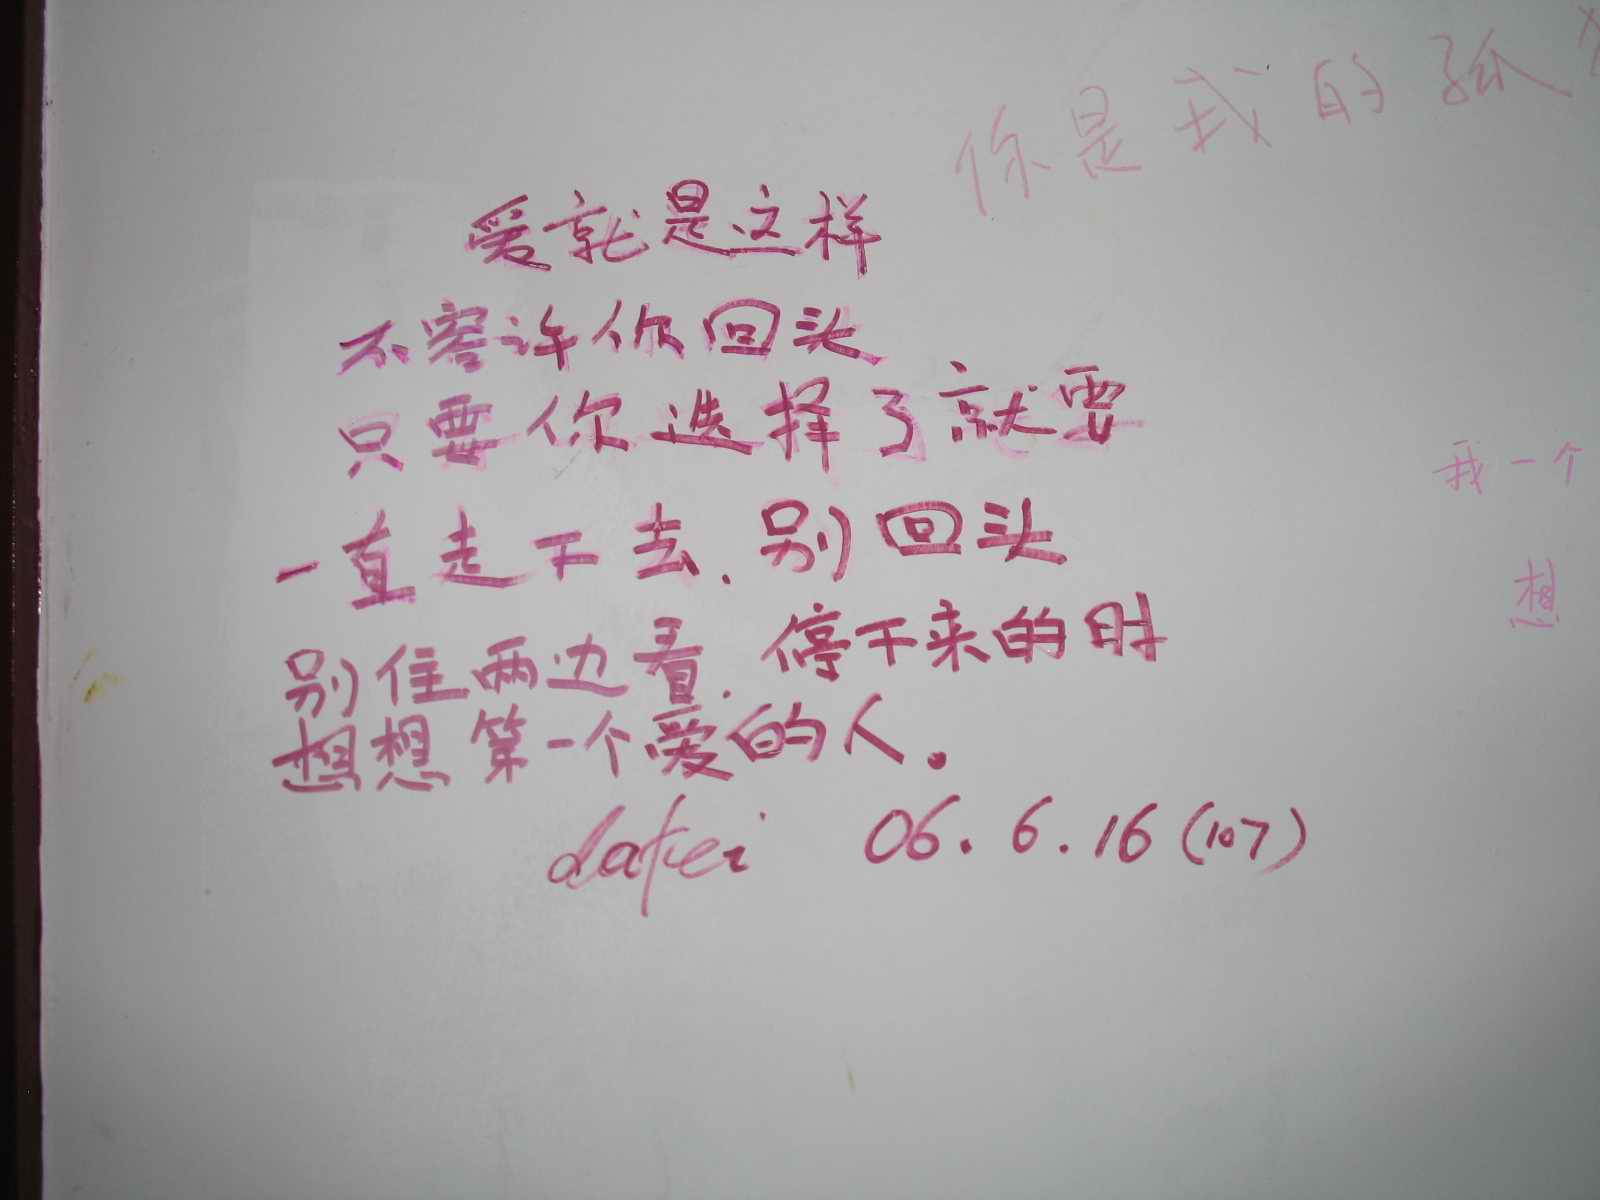 你是我的孤
爱就是这样
不容许你回头
只要你选择了就要
一直走下去.别回头
别住两边看.停下来的时
想想第一个爱的人.
dafei 06.6.16(107)
我一个
想